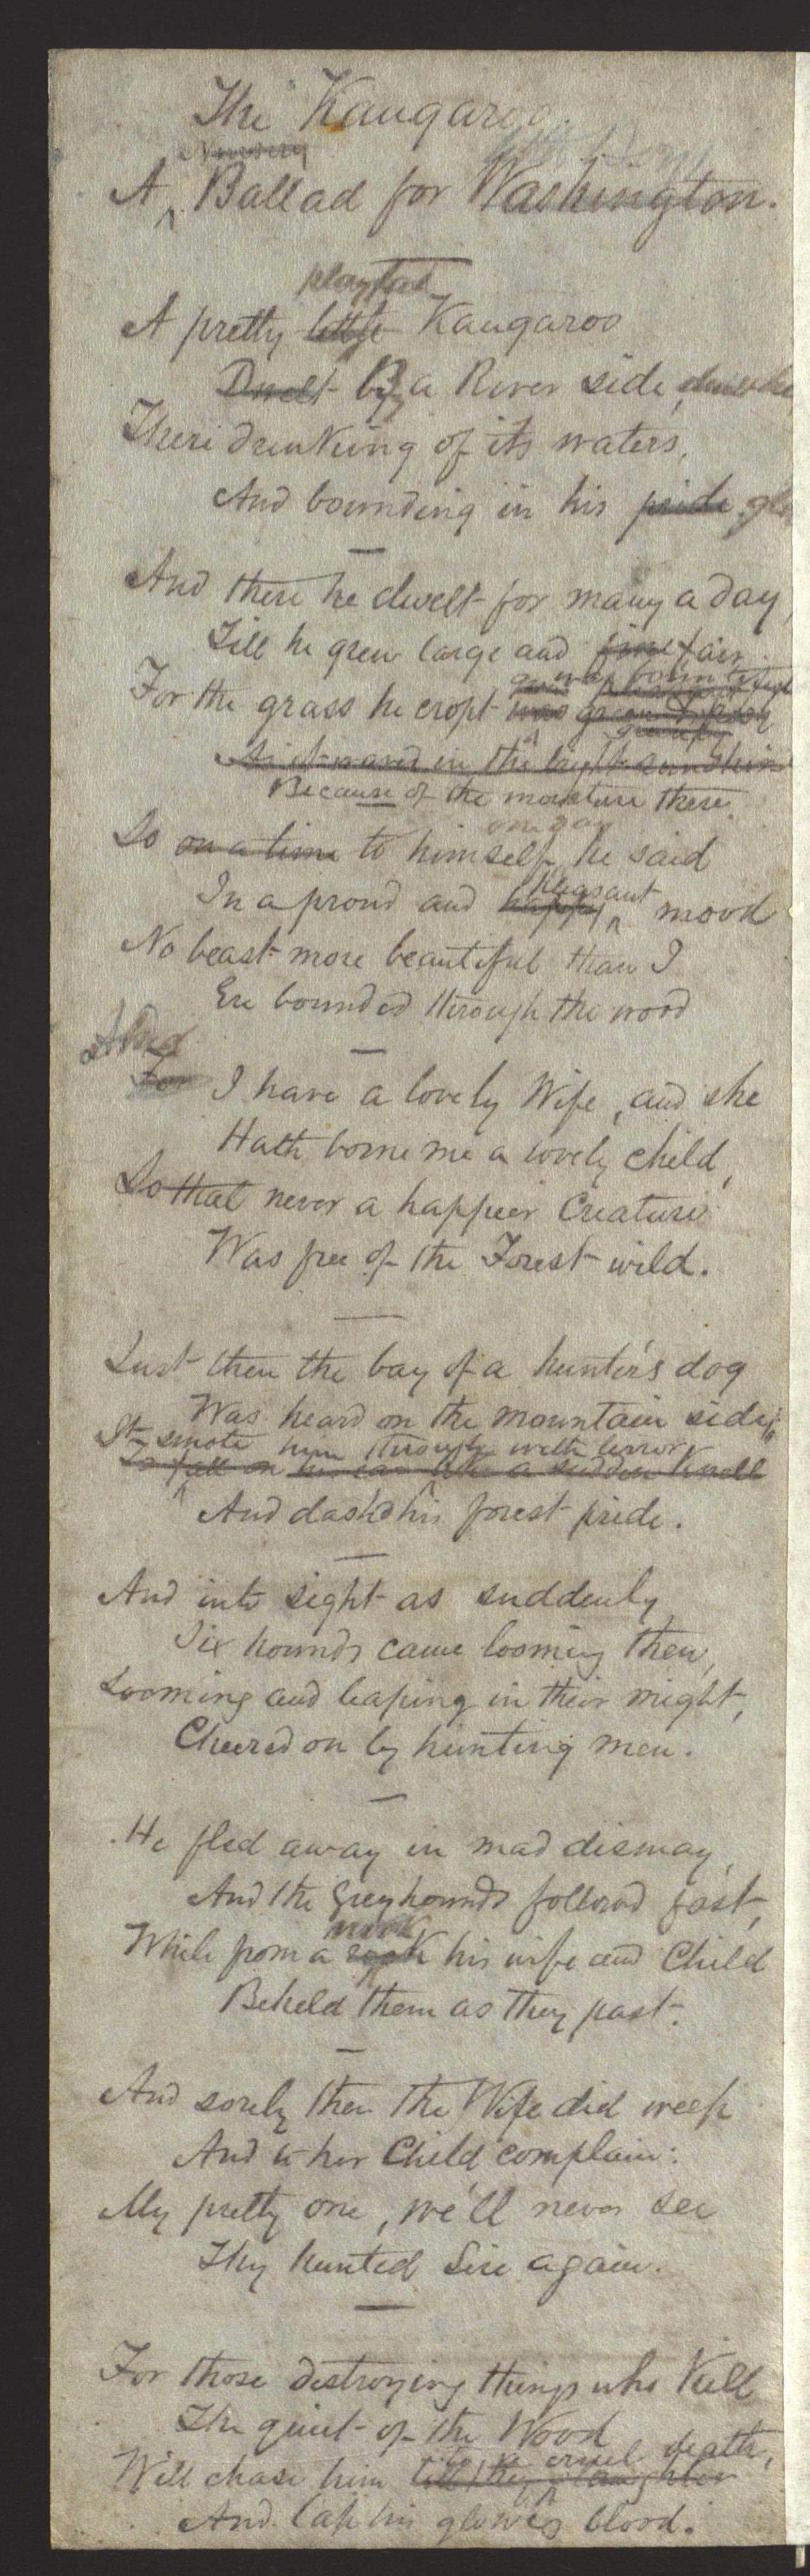 The Kangaroo.
Nursery
A Ballad for Washington.
playful
A pretty little Kangaroo
Dwelt By a River side,
There drinking of its waters,
And bounding in his pride
And there he dwelt for many a day,
Till he grew large and fine fair
was bountiful
For the grass he cropt was green
As it waved in the bright sunshine
Because of the moisture there.
one day
So on a time to himself he said
pleasant
In a proud and happy mood
No beast more beautiful than I
Ere bounded through the wood
And
For I have a lovely Wife, and she
Hath borne me a lovely child,
So that never a happier Creature
Was free of the Forest wild.
Just then the bay of a hunter's dog
Was heard on the mountain side;
It smote him through with terror
So fell on his ear like a sudden Knell
And dashd his forest pride.
And into sight as suddenly
Six hounds came looming then,
Looming and leaping in their might,
Cheered on by hunting men.
He fled away in mad dismay,
And the Greyhounds followd fast,
nook
While from a rock his wife and Child
Beheld them as they past.
And sorely then the Wife did weep
And to her Child complain:
My pretty one, we'll never see
Thy hunted Sire again.
For those destroying things who Kill
The quiet of the Wood
to a cruel death,
Will chase him till they slaughter
And lap his glowing blood.